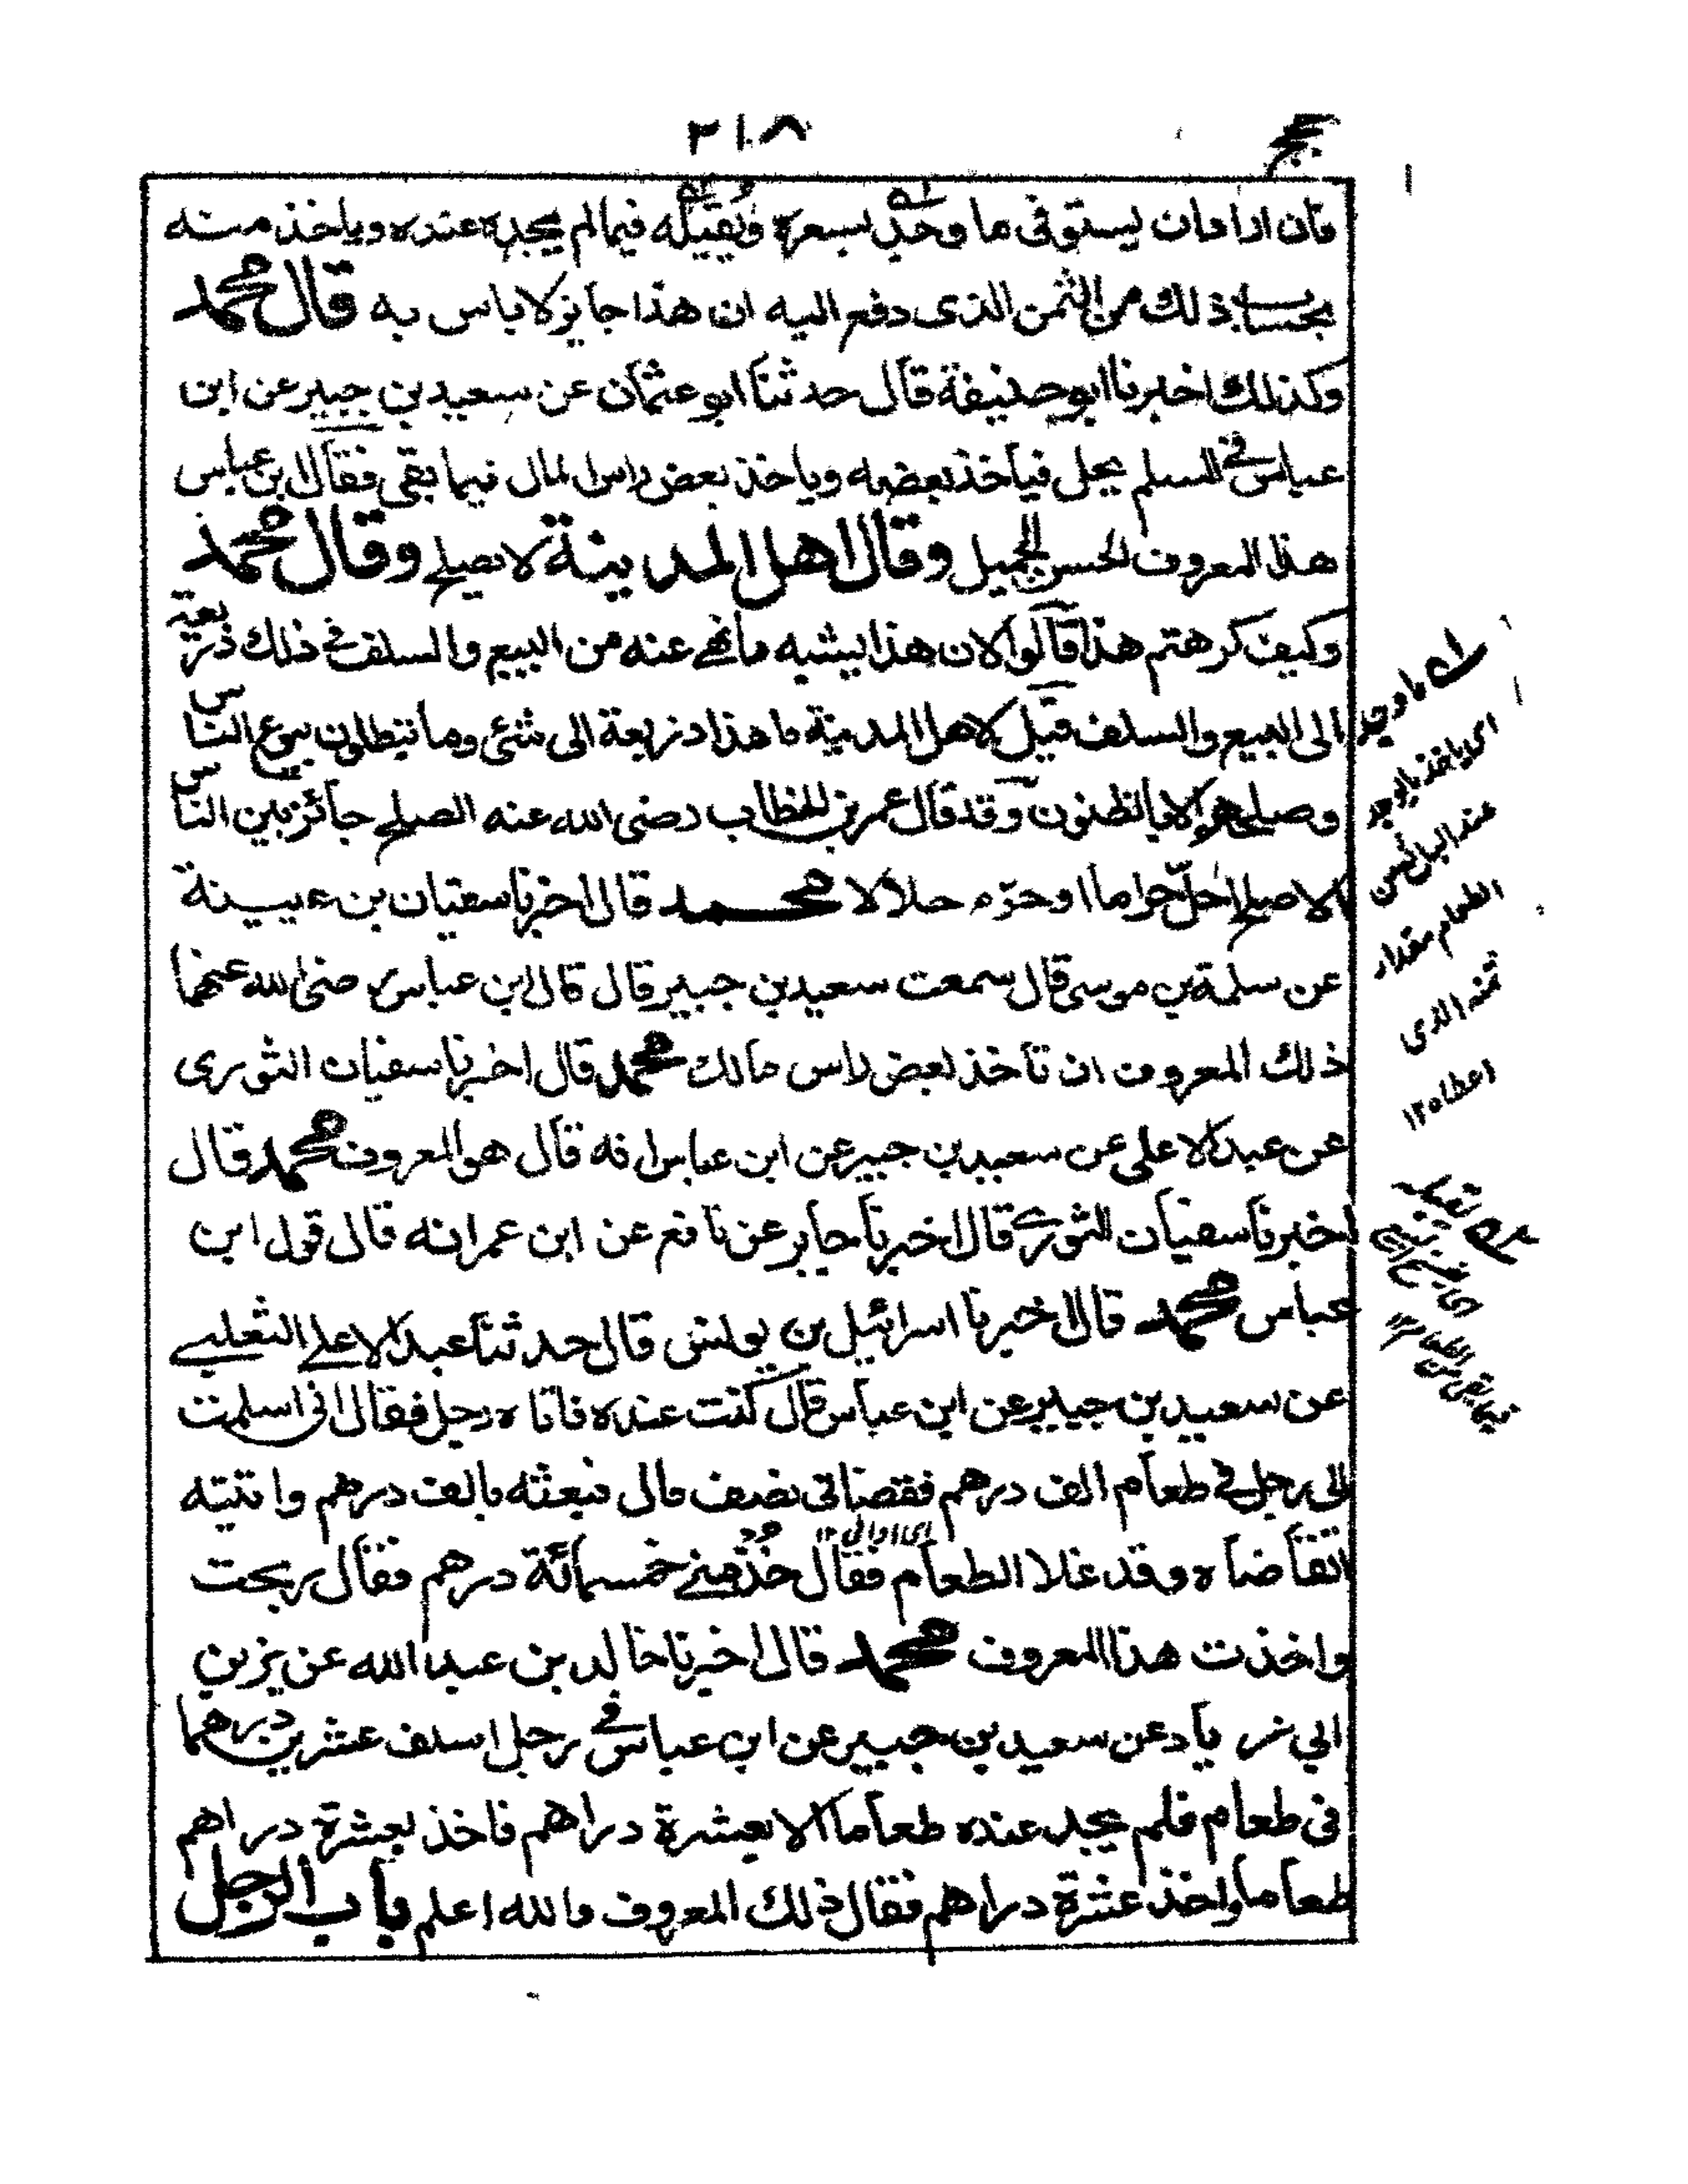 ٢١٠٨
فان اراد ان يستوفى ما وجد بسعره ويقيله فيما لم يجده عنده وياخذ منه
بحساب ذلك من الثمن الذى دفع اليه ان هذا جايز لا باس به قال محمد
وكذلك اخبرنا ابو حنيفة قال حدثنا ابو عثمان عن سعيد بن جبير عن ابن
عباس فى السلم يحل فياخذ بعضه وياخذ بعض راس المال فيما بقى فقال ابن عباس
هذا المعروف الحسن الجميل وقال اهل المدينة لا يصلح وقال محمد
وكيف كرهتم هذا قالوا لان هذا يشبه ما نهى عنه من البيع والسلف فى ذلك ذريعة
الى البيع والسلف قيل لاهل المدينة ما هذا ذريعة الى شئ وما تبطلون بيوع الناس
وصلحهم الا بالظنون وقد قال عمر بن الخطاب رضى الله عنه الصلح جائز بين الناس
الا صلحا احلّ حراما او حرّم حلالا محمد قال اخبرنا سفيان بن عيينة
عن سلمة بن موسى قال سمعت سعيد بن جبير قال قال ابن عباس رضى الله عنهما
ذلك المعروف ان تاخذ بعض راس مالك محمد قال اخبرنا سفيان الثورى
عن عبد الاعلى عن سعيد بن جبير عن ابن عباس انه قال هو المعروف محمد قال
اخبرنا سفيان الثورى قال اخبرنا جابر عن نافع عن ابن عمر انه قال قول ابن
عباس محمد قال اخبرنا اسرائيل بن يونس قال حدثنا عبد الاعلى الثعلبى
عن سعيد بن جبير عن ابن عباس قال كنت عنده فاتاه رجل فقال انى اسلمت
الى رجل فى طعام الف درهم فقضانى نصف مالى فبعته بالف درهم واتيته
اى اوالى ١٢
اتقاضاه وقد غلا الطعام فقال خذ منى خمسمائة درهم فقال ربحت
واخذت هذا المعروف محمد قال اخبرنا خالد بن عبد الله عن يزيد بن
ابى زياد عن سعيد بن جبير عن ابن عباس فى رجل اسلف عشرين درهما
فى طعام فلم يجد عنده طعاما الا بعشرة دراهم فاخذ بعشرة دراهم
طعاما واخذ عشرة دراهم فقال ذلك المعروف والله اعلم باب الرجل
اى ما وجد
اى ياخذ ما وجد
عند البائع من
الطعام مقدار
ثمنه الذى
اعطاه ١٢